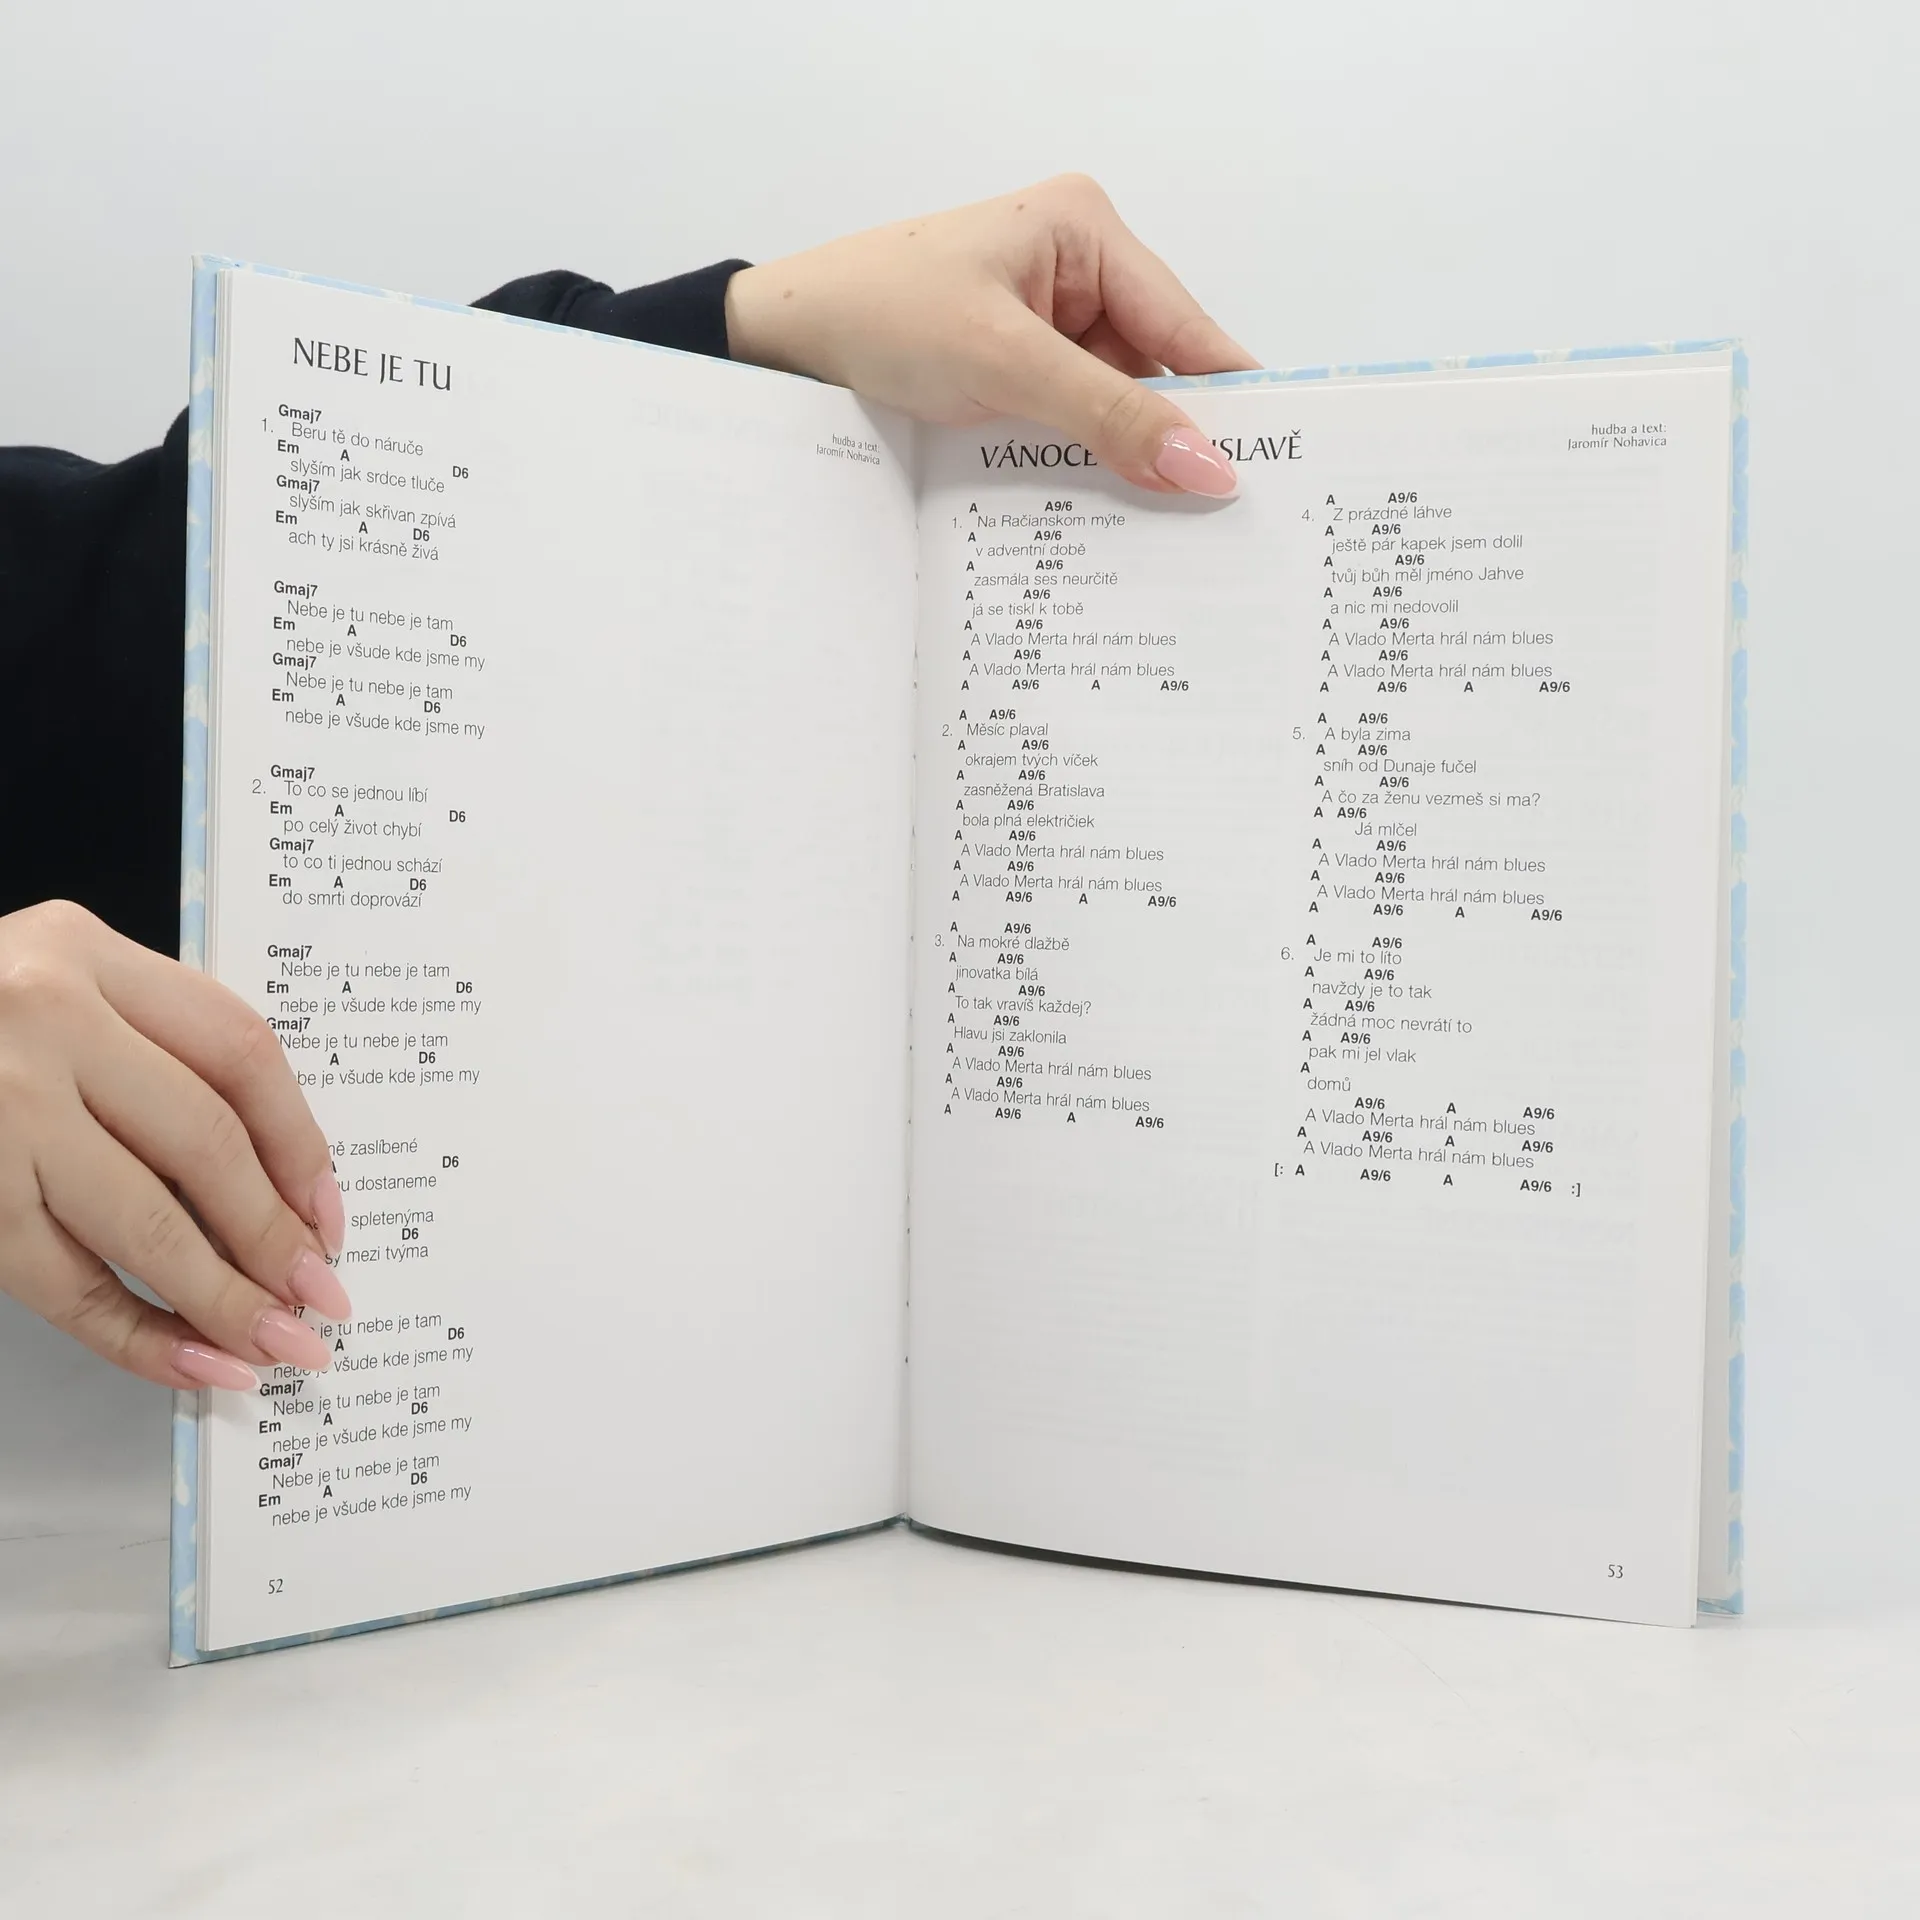 NEBE JE TU
hudba a text:
Jaromír Nohavica
Gmaj7
1. Beru tě do náruče
Em A D6
slyším jak srdce tluče
Gmaj7
slyším jak skřivan zpívá
Em A D6
ach ty jsi krásně živá
Gmaj7
Nebe je tu nebe je tam
Em A D6
nebe je všude kde jsme my
Gmaj7
Nebe je tu nebe je tam
Em A D6
nebe je všude kde jsme my
Gmaj7
2. To co se jednou líbí
Em A D6
po celý život chybí
Gmaj7
to co ti jednou schází
Em A D6
do smrti doprovází
Gmaj7
Nebe je tu nebe je tam
Em A D6
nebe je všude kde jsme my
Gmaj7
Nebe je tu nebe je tam
A D6
je všude kde jsme my
zaslíbené
D6
dostaneme
spletenýma
D6
mezi tvýma
je tu nebe je tam
A D6
všude kde jsme my
Gmaj7
Nebe je tu nebe je tam
Em A D6
nebe je všude kde jsme my
Gmaj7
Nebe je tu nebe je tam
Em A D6
nebe je všude kde jsme my
52
VÁNOCE
hudba a text:
Jaromír Nohavica
A A9/6
1. Na Račianskom mýte
A A9/6
v adventní době
A A9/6
zasmála ses neurčitě
A A9/6
já se tiskl k tobě
A A9/6
A Vlado Merta hrál nám blues
A A9/6
A Vlado Merta hrál nám blues
A A9/6 A A9/6
A A9/6
2. Měsíc plaval
A A9/6
okrajem tvých víček
A A9/6
zasněžená Bratislava
A A9/6
bola plná električiek
A A9/6
A Vlado Merta hrál nám blues
A A9/6
A Vlado Merta hrál nám blues
A A9/6 A A9/6
A A9/6
3. Na mokré dlažbě
A A9/6
jinovatka bílá
A A9/6
To tak vravíš každej?
A A9/6
Hlavu jsi zaklonila
A A9/6
A Vlado Merta hrál nám blues
A A9/6
A Vlado Merta hrál nám blues
A A9/6 A A9/6
A A9/6
4. Z prázdné láhve
A A9/6
ještě pár kapek jsem dolil
A A9/6
tvůj bůh měl jméno Jahve
A A9/6
a nic mi nedovolil
A A9/6
A Vlado Merta hrál nám blues
A A9/6
A Vlado Merta hrál nám blues
A A9/6 A A9/6
A A9/6
5. A byla zima
A A9/6
sníh od Dunaje fučel
A A9/6
A čo za ženu vezmeš si ma?
A A9/6
Já mlčel
A A9/6
A Vlado Merta hrál nám blues
A A9/6
A Vlado Merta hrál nám blues
A A9/6 A A9/6
A A9/6
6. Je mi to líto
A A9/6
navždy je to tak
A A9/6
žádná moc nevrátí to
A A9/6
pak mi jel vlak
A
domů
A9/6 A A9/6
A Vlado Merta hrál nám blues
A A9/6 A A9/6
A Vlado Merta hrál nám blues
[: A A9/6 A A9/6 :]
53